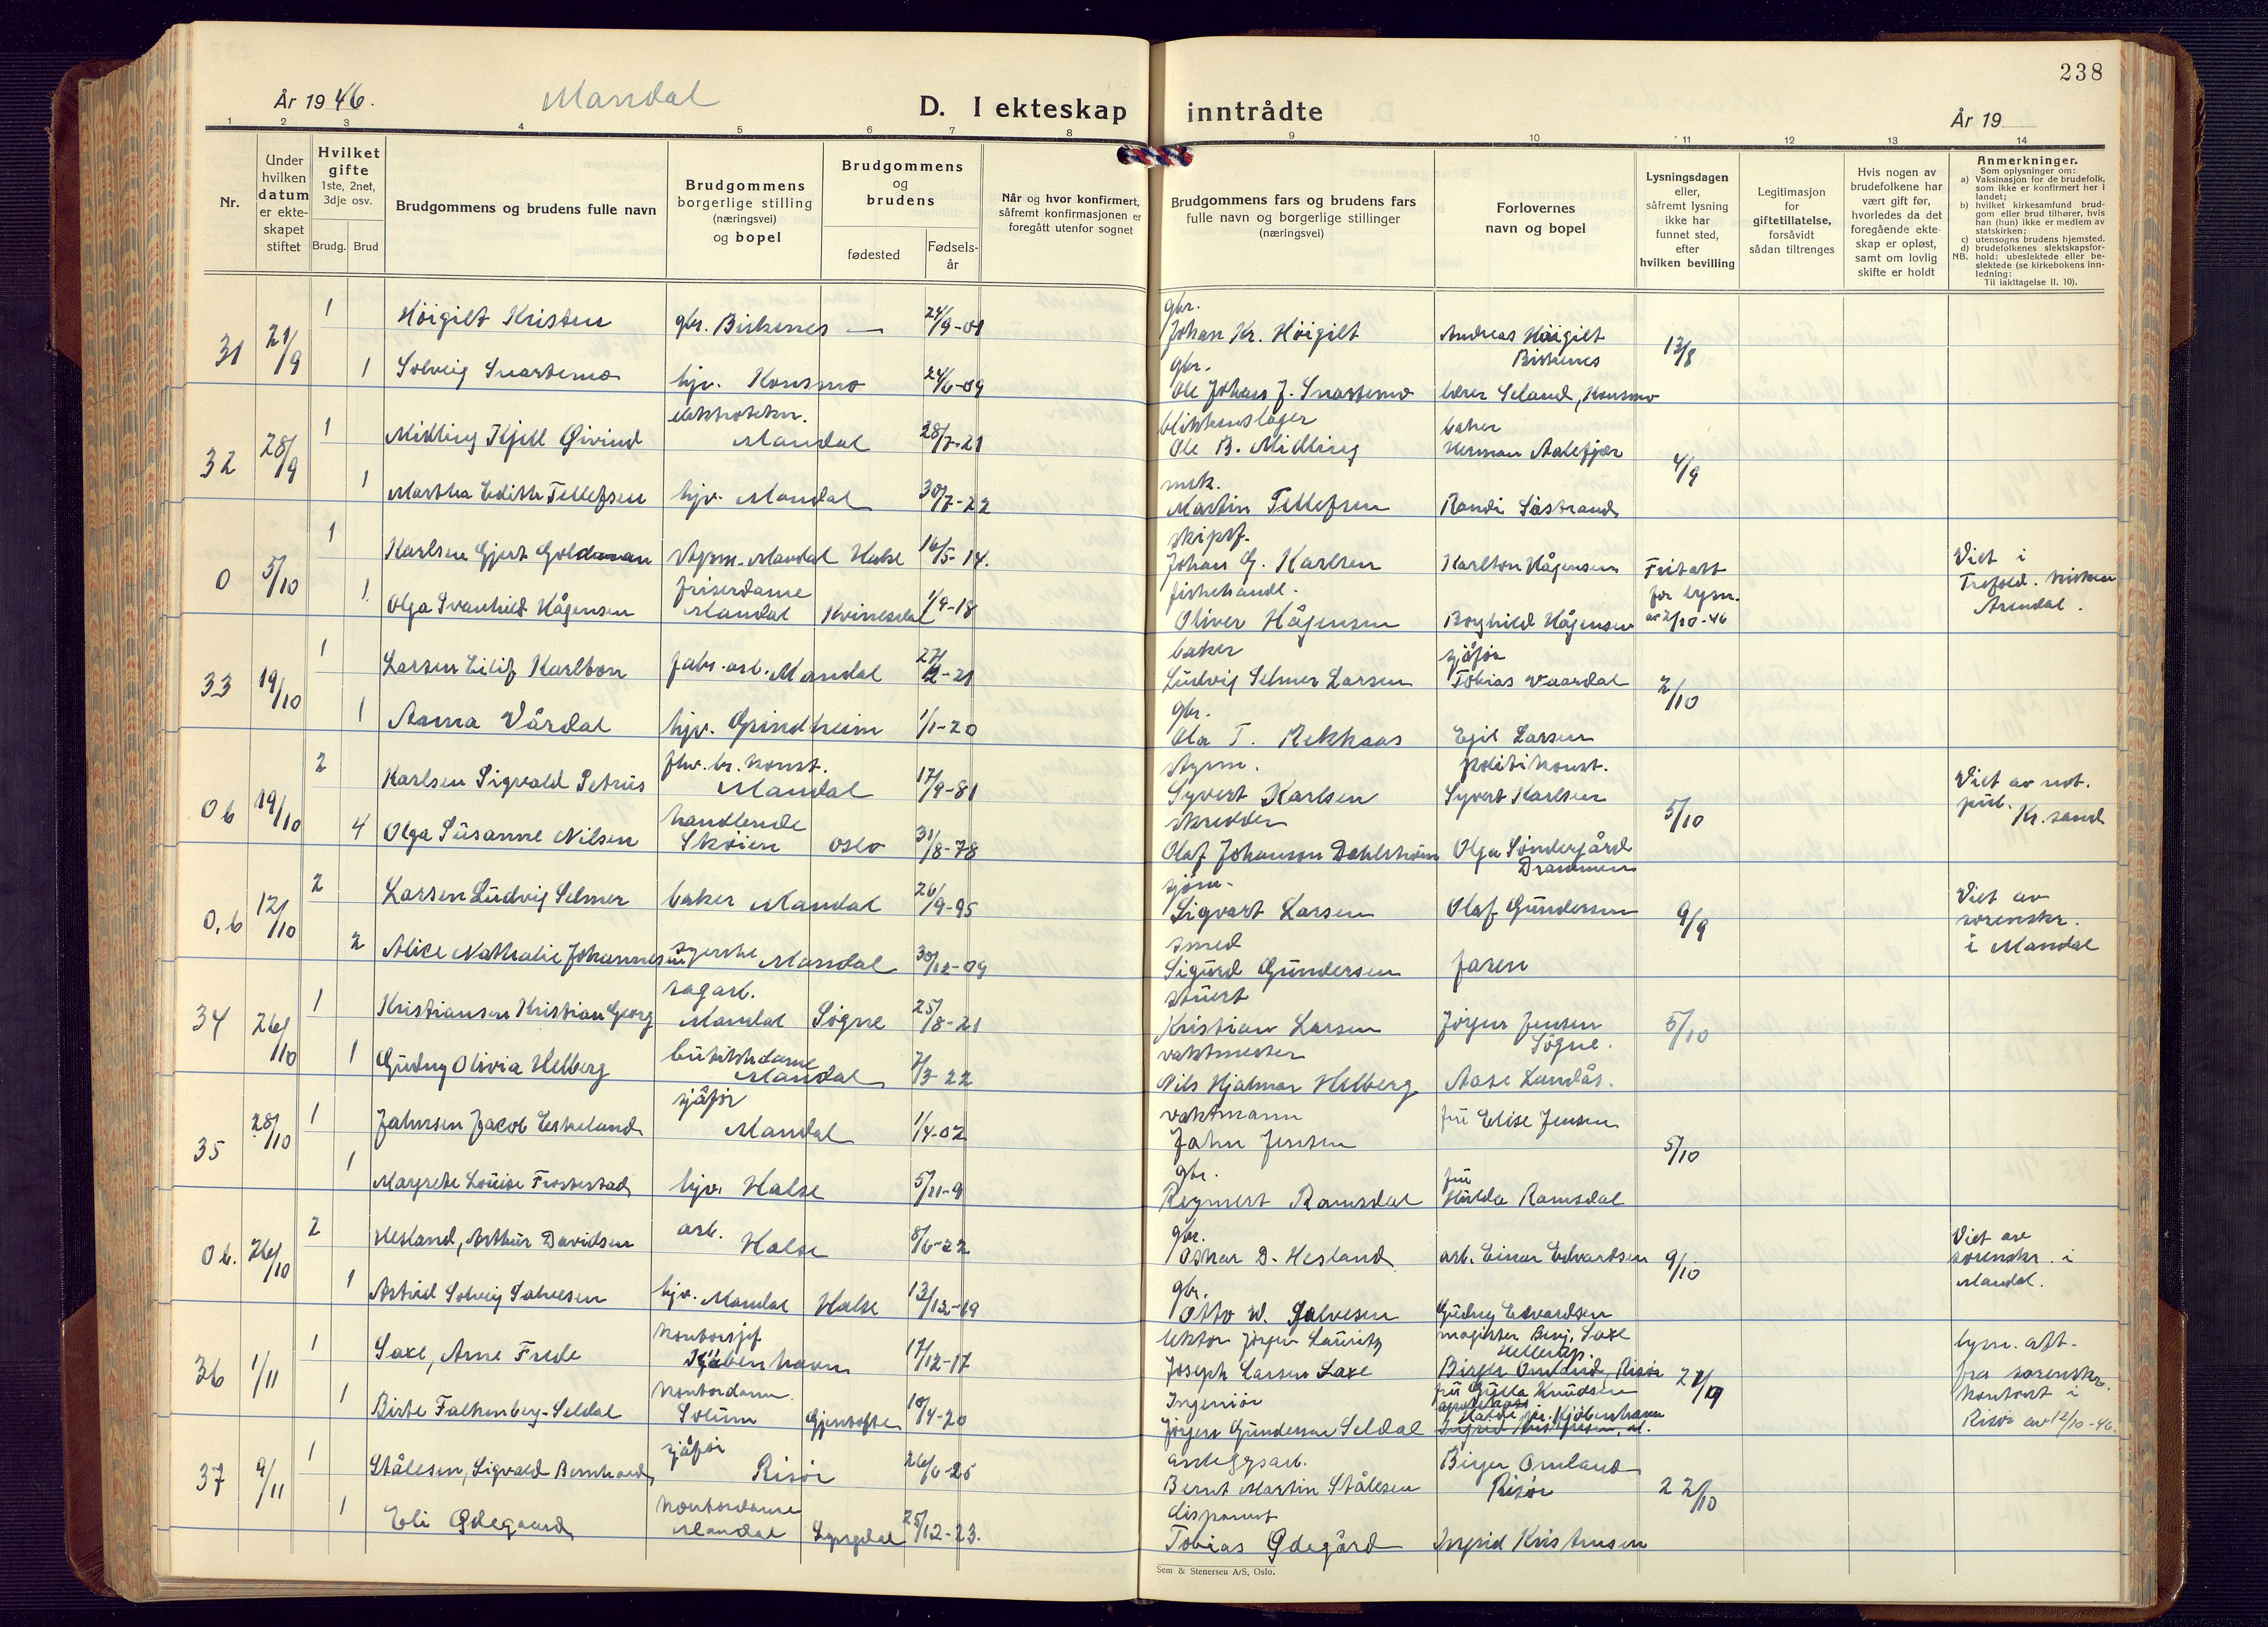 238
År 1946.
Mandal
D. I ekteskap inntrådte
År 19
1 2 3 4 5 6 7 8 9 10 11 12 13 14
Nr.
Under hvilken datum er ekteskapet stiftet
Hvilket gifte
1ste, 2net, 3dje osv.
Brudg. Brud
Brudgommens og brudens fulle navn
Brudgommens borgerlige stilling (næringsvei) og bopel
Brudgommens og brudens
fødested
Fødsels-år
Når og hvor konfirmert, såfremt konfirmasjonen er foregått utenfor sognet
Brudgommens fars og brudens fars fulle navn og borgerlige stillinger (næringsvei)
Forlovernes navn og bopel
Lysningsdagen eller, såfremt lysning ikke har funnet sted, efter hvilken bevilling
Legitimasjon for giftetillatelse, forsåvidt sådan tiltrenges
Hvis nogen av brudefolkene har vært gift før, hvorledes da det foregående ekteskap er opløst, samt om lovlig skifte er holdt
Anmerkninger.
Som oplysninger om:
a) Vaksinasjon for de brudefolk, som ikke er konfirmert her i landet;
b) hvilket kirkesamfund brudgom eller brud tilhører, hvis han (hun) ikke er medlem av statskirken;
c) utensogns brudens hjemsted.
d) brudefolkenes slektskapsforhold: ubeslektede eller beslektede (se kirkebokens innledning:
NB.
Til iakttagelse II. 10).
31 21/9 1 Høigilt Kristen gbr. Birkenes — 24/9-01 gbr. Johan Kr. Høigilt Andreas Høigilt Birkenes 13/8
1 Solveig Snartemo hjv. Konsmo 24/6-09 gbr. Ole Johan J. Snartemo lærer Seland, Konsmo
32 28/9 1 Midling Kjell Øivind elektrotekn. Mandal 28/7-21 blikkenslager Ole B. Midling baker Herman Aalefjær 4/9
1 Martha Edith Tellefsen hjv. Mandal 30/7-22 mek. Martin Tellefsen Randi Låstrand
0 5/10 1 Karlsen Gjert Goldman Stym. Mandal Halse 16/5-14. skipsf. Johan G. Karlsen Karlton Hågensen Fritatt for lysn. av 2/10-46 Viet i Trefold. kirken Arendal.
1 Olga Svanhild Hågensen friserdame Mandal Kvinesdal 1/9-18 fiskehandl. Oliver Hågensen Borghild Hågensen
33 19/10 1 Larsen Eilif Karlton fabr. arb. Mandal 27/2-21 baker Ludvig Selmer Larsen sjåfør Tobias Vaardal 2/10
1 Aanna Vårdal hjv. Grindheim 1/1-20 gbr. Ola T. Rekkaas Egil Larsen
0 b 19/10 2 Karlsen Sigvald Petrus fhv. br. konst. Mandal 17/9-81 stym. Syvert Karlsen politikonst. Syvert Karlsen 5/10 Viet av not. pub. Kr.sand
4 Olga Susanne Nilsen handlende Skøien Oslo 31/8-78 skredder Olaf Johanson Dahlstrøm Olga Søndergård Drammen
0, b 12/10 2 Larsen Ludvig Selmer baker Mandal 26/9-95 sjøm. Sigvart Larsen Olaf Gundersen 9/9 Viet av sorenskr. i Mandal
2 Alice Nathalie Johannesen syerske Mandal 30/12-09 smed Sigurd Gundersen faren
34 26/10 1 Kristiansen Kristian Georg sagarb. Mandal Søgne 25/8-21 stuert Kristian Larsen Jørgen Jensen Søgne. 5/10
1 Gudny Olivia Helberg butikkdame Mandal 7/3-22 vaktmester Nils Hjalmar Helberg Aase Lundås.
35 28/10 1 Jahnsen Jacob Eskeland sjåfør Mandal 1/4-02 vaktmann Jahn Jensen fru Elise Jensen 5/10
1 Margrete Louise Frostestad hjv. Halse 5/11-9 gbr. Regmert Ramsdal fru Hilda Ramsdal
0 b. 26/10 2 Hesland, Arthur Davidsen arb. Halse 8/6-22 gbr. Oskar D. Hesland arb. Einar Edvardsen 9/10 Viet av sorenskr. i Mandal.
1 Astrid Solveig Salvesen hjv. Mandal Halse 13/12-19 gbr. Otto W. Salvesen Gudny Edvardsen
36 1/11 1 Saxe, Arne Frede kontorsjef Kjøbenhavn 17/12-17 lektor Jørgen Lauritz Joseph Larsen Saxe magister Benj. Saxe Hellerup. Birger Omlund, Risør 21/9 lysn. att. fra sorenskr. kontoret i Risør av 12/10-46.
1 Birte Falkenberg-Seldal kontordame Solum Gjentofte 10/4-20 Ingeniør Jørgen Gunderson Seldal fru Gylla Knudsen Kjøbenhavn
37 9/11 1 Stålesen, Sigvald Bernhard sjåfør Risør 26/6-25 anleggsarb. Bernt Martin Stålesen Birger Omland Risør 22/10
1 Eli Ødegaard kontordame Mandal Lyngdal 25/12-23. disponent Tobias Ødegård Ingrid Kristensen
Sem & Stenersen A/S, Oslo.